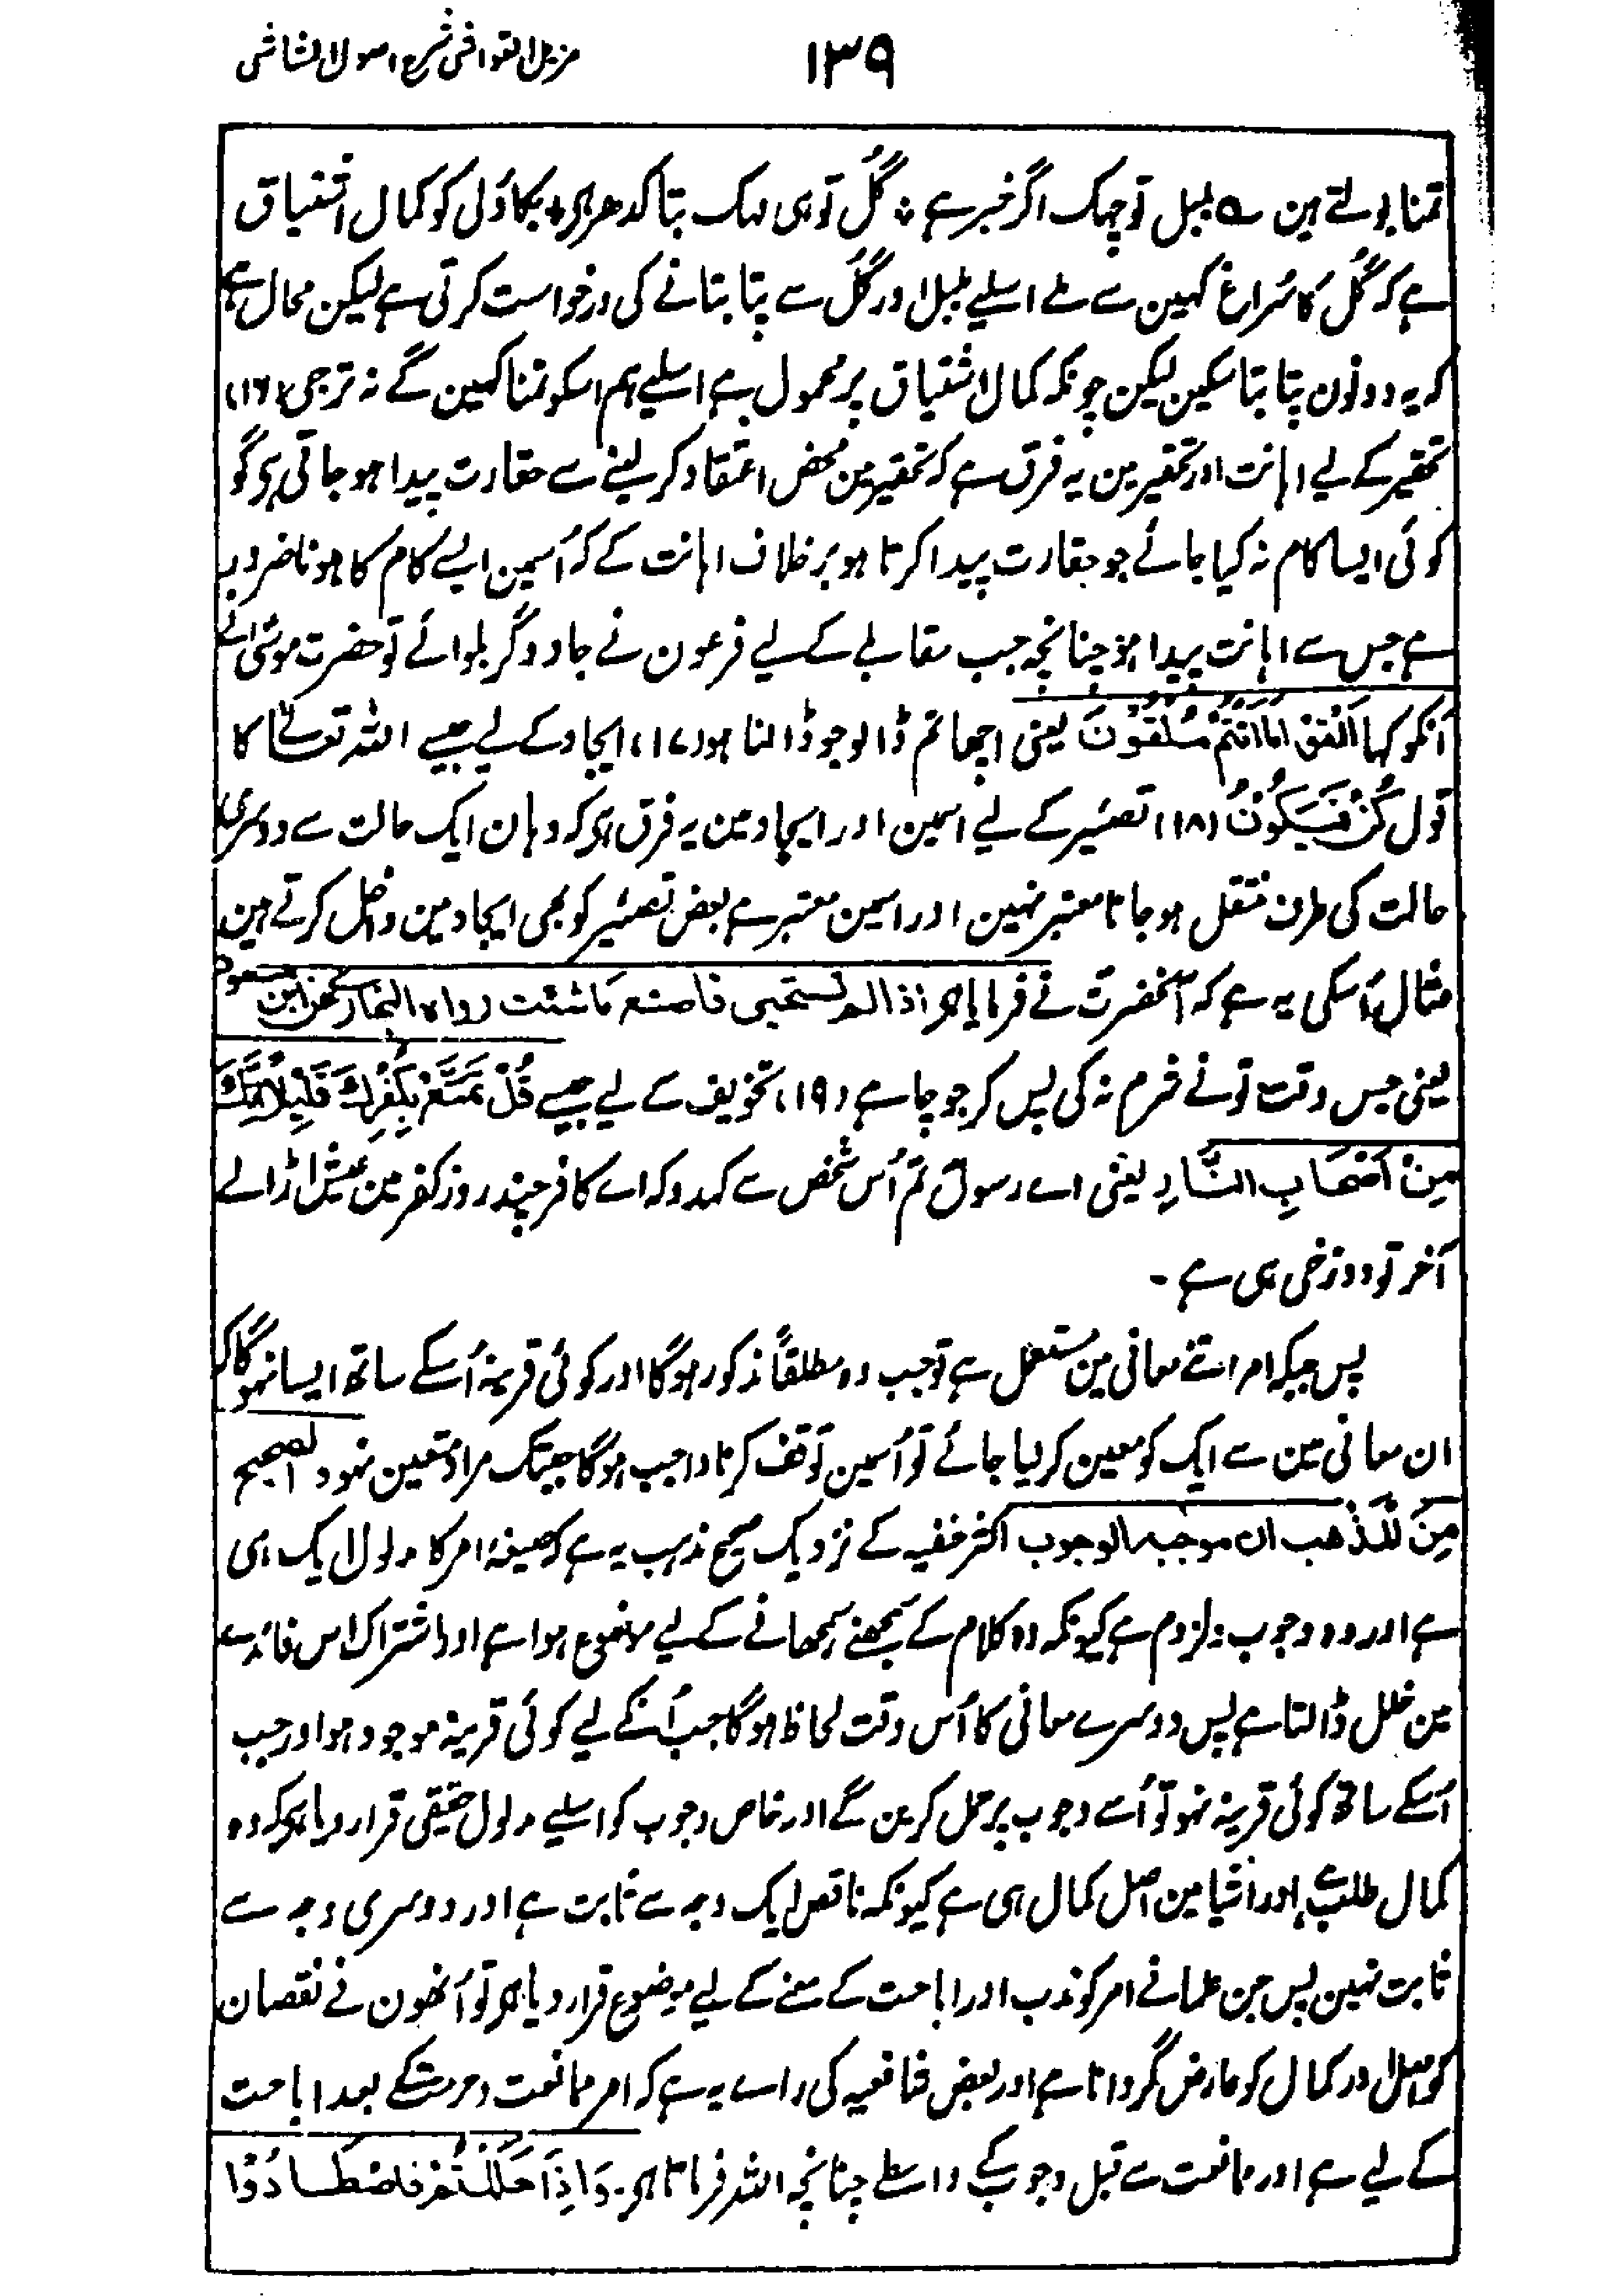 ۱۳۹
مزیل الغواشی شرح اصول الشاشی
تمنا بولتے ہین ؎ بلبل تو چہک اگر خبر ہے ؞ گُل تو ہی مہک بتا کدھر ہی + بکاولی کو کمال اشتیاق
ہے کہ گُل کا سُراغ کہین سے ملے اسلیے بلبل اور گُل سے پتا بتانے کی درخواست کرتی ہے لیکن محال ہے
کہ یہ دونون پتا بتا سکین لیکن چونکہ کمال اشتیاق پر محمول ہے اسلیے ہم اسکو تمنا کہین گے نہ ترجی (۱۶)
تحقیر کے لیے اہانت اور تحقیر مین یہ فرق ہے کہ تحقیر مین محض اعتقاد کر لینے سے حقارت پیدا ہو جاتی ہی گو
کوئی ایسا کام نہ کیا جائے جو حقارت پیدا کرتا ہو برخلاف اہانت کے کہ اُسمین ایسے کام کا ہونا ضرور
ہے جس سے اہانت پیدا ہو چنانچہ جب مقابلے کے لیے فرعون نے جادوگر بلوائے تو حضرت موسیٰ نے
اُنکو کہا اَلْقُوْا مَا اَنْتُمْ مُلْقُوْنَ یعنی اچھا تم ڈالو جو ڈالنا ہو (۱۷) ایجاد کے لیے جیسے اللہ تعالےٰ کا
قول کُنْ فَیَکُوْنُ (۱۸) تصئیر کے لیے اسمین اور ایجاد مین یہ فرق ہی کہ وہان ایک حالت سے دوسری
حالت کی طرف منتقل ہو جانا معتبر نہین اور اسمین معتبر ہے بعض تصئیر کو بھی ایجاد مین داخل کرتے ہین
مثال اُسکی یہ ہے کہ آنحضرت نے فرمایا ہی اذا لم تستحیی فاصنع ما شئت رواہ البخاری عن ابن مسعود
یعنی جس وقت تو نے شرم نہ کی پس کر جو چاہے (۱۹) تخویف کے لیے جیسے قُلْ تَمَتَّعْ بِکُفْرِکَ قَلِیْلًا اِنَّکَ
مِنْ اَصْحَابِ النَّارِ یعنی اے رسول تم اُس شخص سے کہدو کہ اے کافر چند روز کفر مین عیش اڑالے
آخر تو دوزخی ہی ہے ۔
پس جبکہ امر اتنے معانی مین مستعمل ہے تو جب وہ مطلقاً مذکور ہوگا اور کوئی قرینہ اُسکے ساتھ ایسا نہوگا کہ
ان معانی مین سے ایک کو معین کر لیا جائے تو اُسمین توقف کرنا واجب ہوگا جبتک مراد متعین نہو و الصحیح
مِنَ المذھب ان موجبہ الوجوب اکثر حنفیہ کے نزدیک صحیح مذہب یہ ہے کہ صیغۂ امر کا مدلول ایک ہی
ہے اور وہ وجوب و لزوم ہے کیونکہ وہ کلام کے سمجھنے سمجھانے کے لیے موضوع ہوا ہے اور اشتراک اس فائدے
مین خلل ڈالتا ہے پس دوسرے معانی کا اُس وقت لحاظ ہوگا جب اُنکے لیے کوئی قرینہ موجود ہو اور جب
اُسکے ساتھ کوئی قرینہ نہو تو اُسے وجوب پر حمل کرین گے اور خاص وجوب کو اسلیے مدلول حقیقی قرار دیا ہی کہ وہ
کمال طلب ہے اور اشیا مین اصل کمال ہی ہے کیونکہ ناقص ایک وجہ سے ثابت ہے اور دوسری وجہ سے
ثابت نہین پس جن علما نے امر کو ندب اور اباحت کے معنے کے لیے موضوع قرار دیا ہی تو اُنھون نے نقصان
کو اصل اور کمال کو عارض گردانا ہے اور بعض شافعیہ کی راے یہ ہے کہ امر ممانعت و حرمت کے بعد اباحت
کے لیے ہے اور ممانعت سے قبل وجوب کے واسطے چنانچہ اللہ فرماتا ہی ۔ وَاِذَا حَلَلْتُمْ فَاصْطَادُوْا